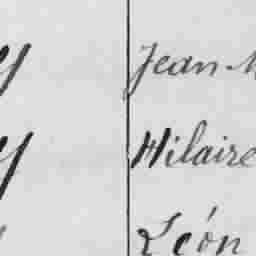 y Jean-M
y Hilaire
Léon